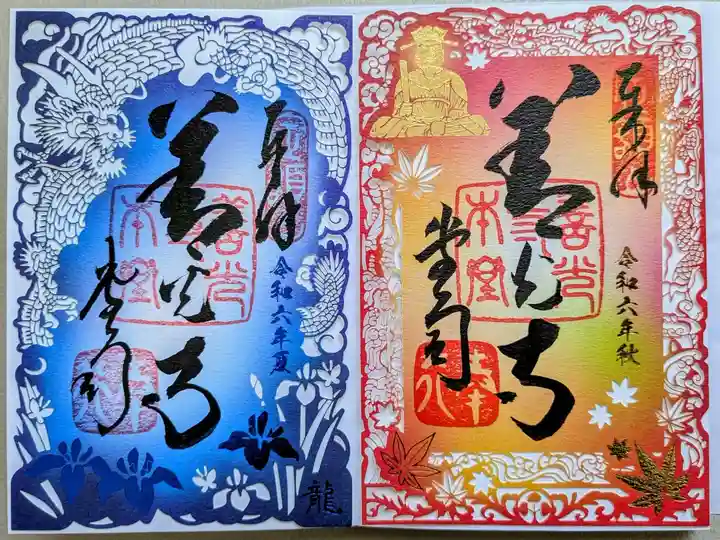 奉拝
令和六年夏
善光寺
堂司
本堂
龍
奉拝
令和六年秋
善光寺
堂司
本堂